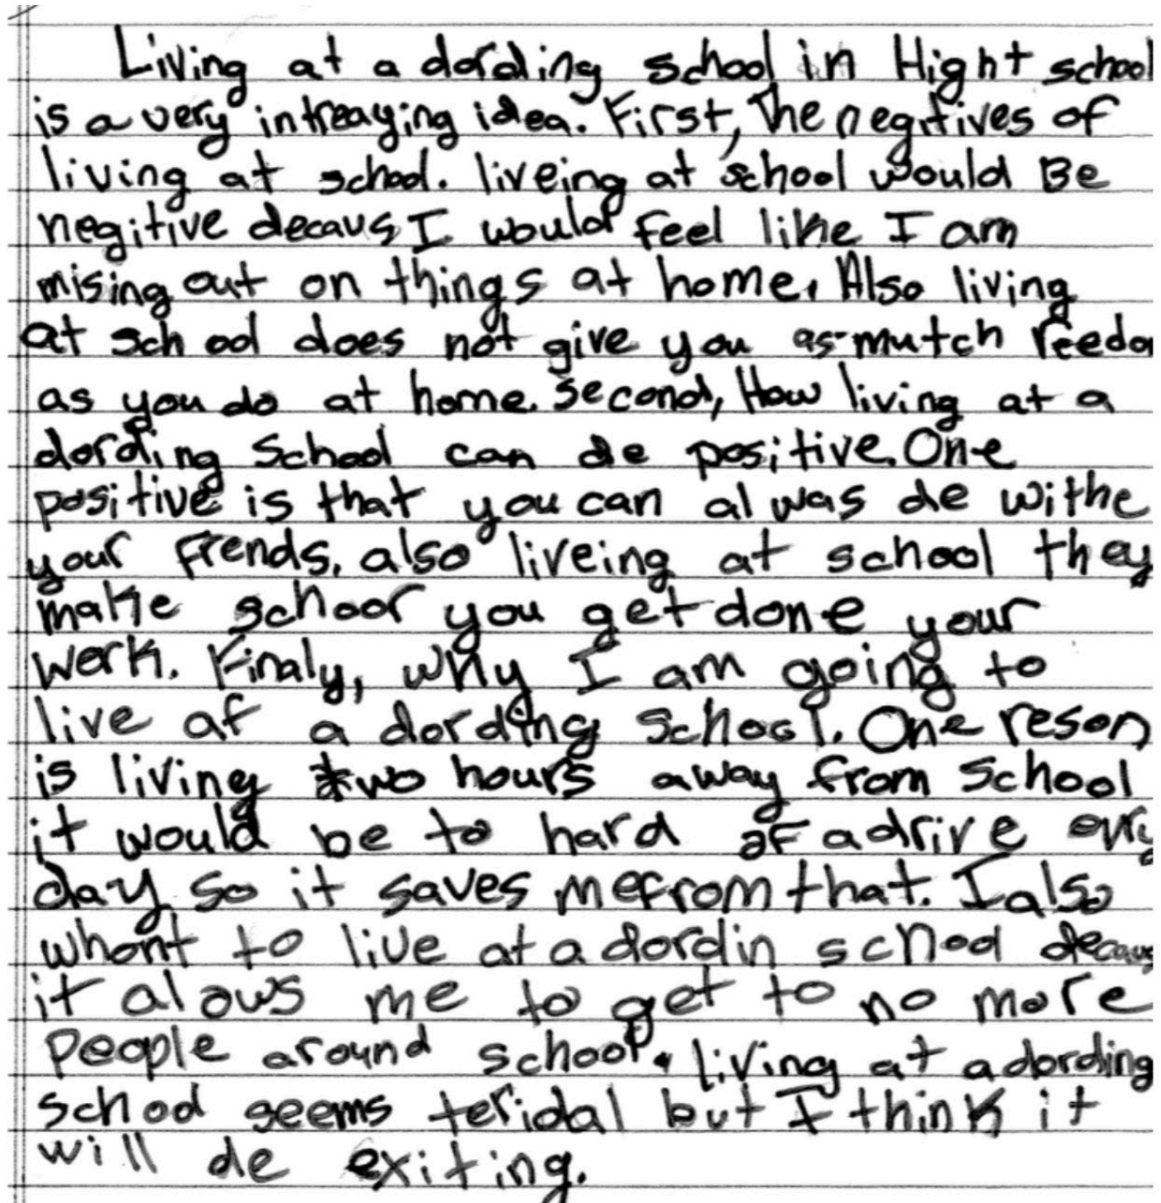 Living at a dording school in Hight school
is a very intreaying idea. First, The negitives of
living at school. liveing at school would Be
negitive decaus I would feel like I am
mising out on things at home. Also living
at school does not give you as mutch reedo
as you do at home. Second, How living at a
dording School can de positive. One
positive is that you can alwas de withe
your frends. also liveing at school they
make school you get done your
work. Finaly, why I am going to
live at a dording School. One reson
is living two hours away from School
it would be to hard of a drive evry
day so it saves me from that. I also
whont to live at a dordin school decaus
it alows me to get to no more
People around school. living at a dording
school seems teridal but I think it
will de exiting.